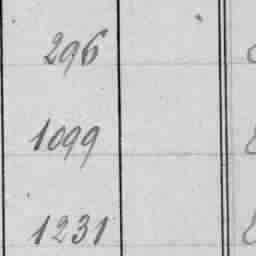 296
1099
1231